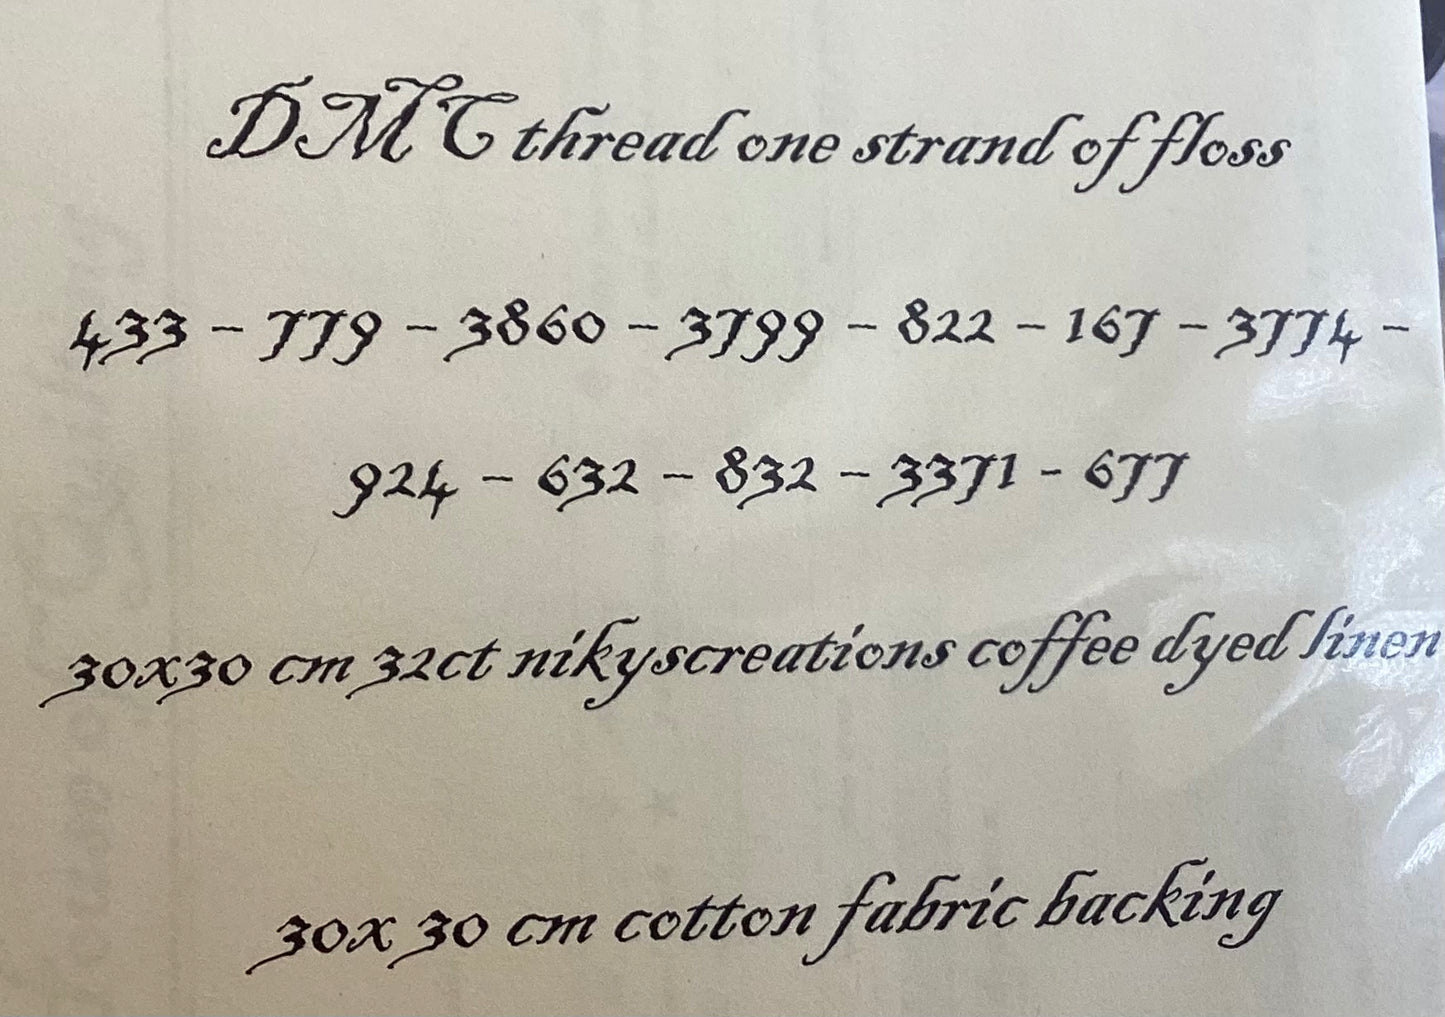 DMC thread one strand of floss
433 - 779 - 3860 - 3799 - 822 - 167 - 3774 -
924 - 632 - 832 - 3371 - 677
30x30 cm 32ct nikyscreations coffee dyed linen
30x 30 cm cotton fabric backing